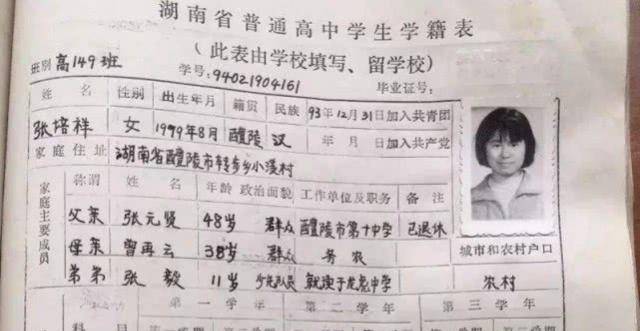 湖南省普通高中学生学籍表
(此表由学校填写、留学校)
班别 高149班 学号:94021904161 毕业证号:
姓名 性别 出生年月 籍贯 民族 93年12月31日加入共青团
张培祥 女 1979年8月 醴陵 汉 年 月 日加入共产党
家庭住址 湖南省醴陵市转步乡小溪村
家庭主要成员 称谓 姓名 年龄 政治面貌 工作单位及职务 备注
父亲 张元贤 48岁 群众 醴陵市第十中学 已退休
城市和农村户口
母亲 曾再云 38岁 群众 务农
弟弟 张毅 11岁 少先队员 就读于龙虎中学 农村
第一学年 第二学年 第三学年
科目